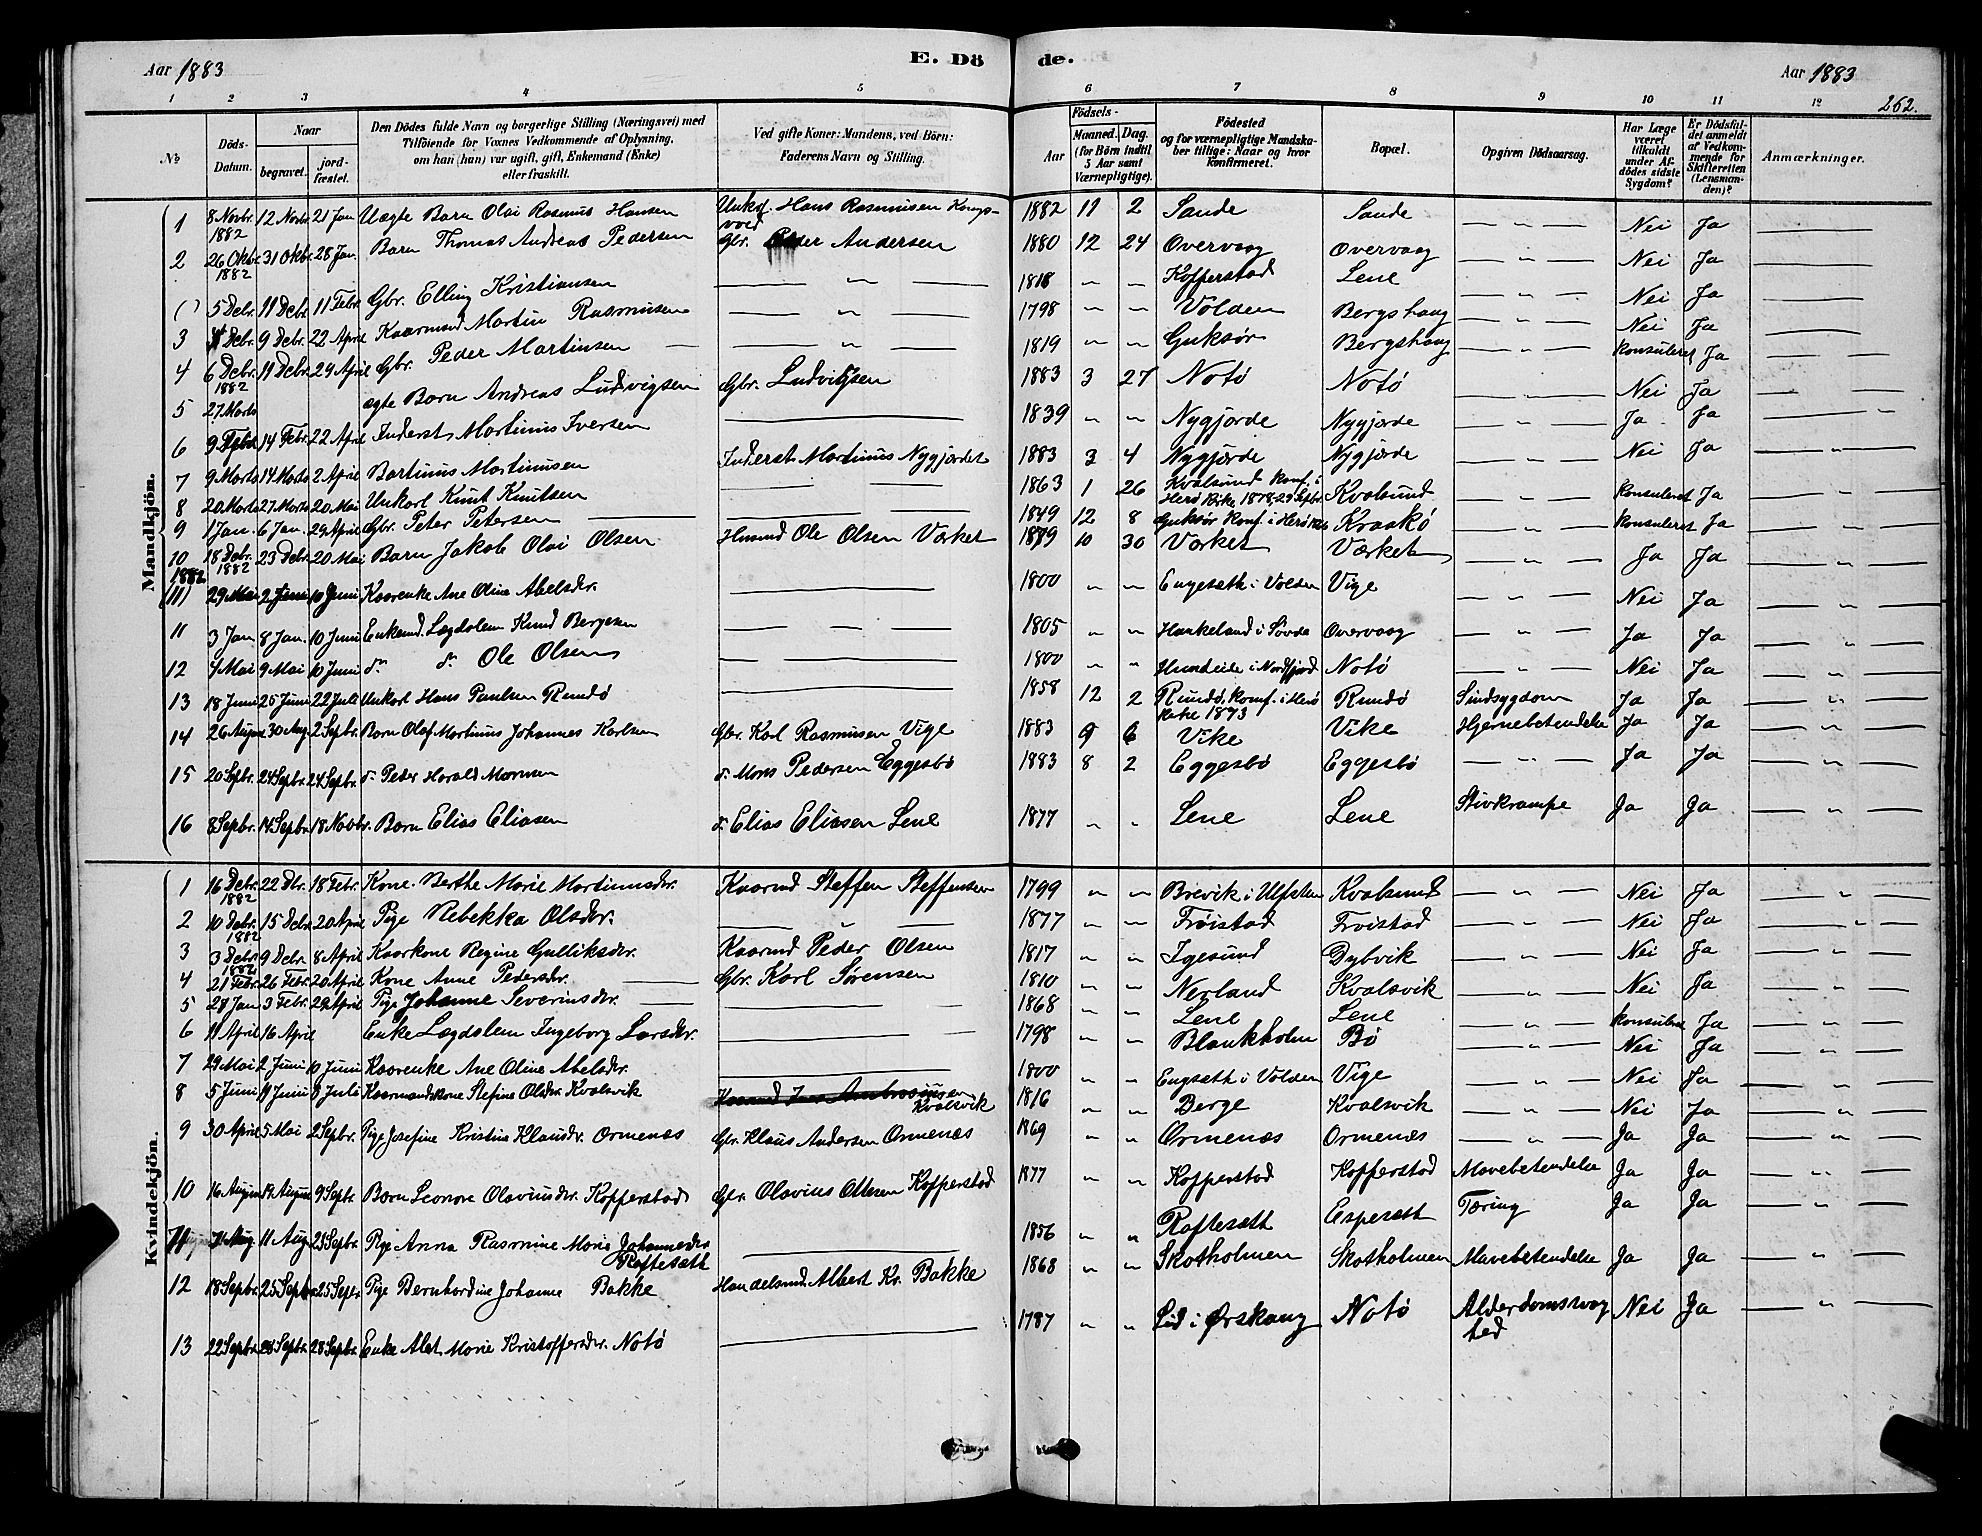 Aar 1883
E. Dö
de.
Aar 1883
262.
1 2 3 4 5 6 7 8 9 10 11 12
No
Döds-Datum.
Naar
begravet.
jordfæstet.
Den Dödes fulde Navn og borgerlige Stilling (Næringsvei) med
Tilföiende for Voxnes Vedkommende af Oplysning,
om han (hun) var ugift, gift, Enkemand (Enke)
eller fraskilt.
Ved gifte Koner: Mandens, ved Börn:
Faderens Navn og Stilling.
Födsels-
Aar
Maaned. Dag.
(for Börn indtil
5 Aar samt
Værnepligtige).
Födested
og for værnepligtige Mandska-
ber tillige: Naar og hvor
konfirmeret.
Bopæl.
Opgiven Dödsaarsag.
Har Læge
været
tilkaldt
under Af-
dödes sidste
Sygdom?
Er Dödsfal-
det anmeldt
af Vedkom-
mende for
Skifteretten
(Lensman-
den)?
Anmærkninger.
Mandkjön.
1 8 Novbr. 1882 12 Novbr 21 Jan Uægte Barn Olai Rasmus Hansen Unkd. Hans Rasmusen Kongsvold 1882 11 2 Sande Sande — " — Nei Ja
2 26 Okbr. 1882 31 Okbr. 28 Jan. Barn Thomas Andreas Pedersen Gbr. Peder Andersen 1880 12 24 Overvaag Overvaag — " — Nei Ja
( ) 5 Debr. 11 Debr 11 Febr. Gbr. Elling Kristiansen — " — 1818 " " Kopperstad Lene — " — Nei Ja
3 Debr. 9 Debr. 22 April Kaarmand Martin Rasmusen — " — 1798 " " Volden Bergshaug — " — Nei Ja
4 6 Debr. 1882 11 Debr. 29 April Gbr. Peder Martinsen — " — 1819 " " Guksør Bergshaug — " — konsuleret Ja
5 27 Marts ægte Barn Andreas Ludvigsen Gbr. Ludvigsen 1883 3 27 Notø Notø — " — Nei Ja
6 9 Febr. 14 Febr. 22 April Inderst Martinus Iversen — 1839 " " Nygjørde Nygjørde — " — Ja Ja
7 9 Marts 14 Marts 2 April Bartinus Martinusen Inderst Martinus Nygjørdet 1883 3 4 Nygjørde Nygjørde — " — Nei Ja
8 20 Marts 27 Marts 20 Mai Unkarl Knut Knutsen — 1863 1 26 Kvalsund Konf. i Herø Kirke 1878 29 Sepbr. Kvalsund — " — konsuleret Ja
9 1 Jan. 6 Jan. 29 April Gbr. Peter Petersen — 1849 12 8 Guksør Konf. i Herø Kirke Kraakø — " — konsuleret Ja
10 18 Debr. 1882 23 Debr. 20 Mai Barn Jakob Olai Olsen Husmd Ole Olsen Værket 1879 10 30 Værket Værket — " — Ja Ja
1882
(11) 29 Mai 2 Juni 10 Juni Kaarenke Ane Oline Abelsdr. — 1800 " " Engesæth i Volden Vige — " — Nei Ja
11 3 Jan 8 Jan. 10 Juni Enkemd. Lægdslem Knud Bergesen — 1805 " " Hankeland i Søvde Overvaag — " — Ja Ja
12 4 Mai 9 Mai 10 Juni do do Ole Olsen — 1800 " " Hundeide i Nordfjord Notø — " — Nei Ja
13 18 Juni 25 Juni 22 Juli Unkarl Hans Paulsen Rundø — 1858 12 2 Rundø, konf. i Herø Kirke 1873 Rundø Sindsygdom Ja Ja
14 26 August 30 Aug. 2 Sepbr. Barn Olaf Martinus Johannes Karlsen Gbr. Karl Rasmusen Vige 1883 9 6 Vike Vike Hjernebetendelse Ja Ja
15 20 Sepbr. 24 Sepbr. 24 Sepbr. do Peder Harald Monsen do Mons Pedersen Eggesbø 1883 8 2 Eggesbø Eggesbø — " — Ja Ja
16 8 Sepbr. 14 Sepbr. 18 Novbr. Barn Elias Eliasen do Elias Eliasen Lene 1877 " " Lene Lene Stivkrampe Ja Ja
Kvindekjön.
1 16 Debr. 1882 22 Dbr. 18 Febr. Kone Berthe Marie Martinusdr. Kaarmd Steffen Steffensen 1799 " " Brevik i Ulfsten Kvalsund — " — Nei Ja
2 10 Debr. 1882 15 Debr. 20 April Pige Rebekka Olsdr. — " — 1877 " " Frøistad Frøistad — " — Nei Ja
3 3 Debr. 1882 9 Debr. 8 April Kaarkone Regine Gulliksdr. Kaarmd Peder Olsen 1817 " " Igesund Dybvik — " — Nei Ja
4 21 Febr. 26 Febr. 20 April Kone Anne Pedersdr. Gbr. Karl Sørensen 1810 " " Nerland Kvalsvik — " — Nei Ja
5 28 Jan 3 Febr. 29 April Pige Johanne Severinsdr. — 1868 " " Lene Lene — " — konsuleret Ja
6 11 April 16 April Enke Lægdslem Ingeborg Larsdr. — 1798 " " Blankholm Bø — " — Nei Ja
7 29 Mai 2 Juni 10 Juni Kaarenke Ane Oline Abelsdr. — 1800 " " Engsæth i Volden Vige — " — Nei Ja
8 5 Juni 11 Juni 8 Juli Kaarmandskone Stefine Olsdr. Kvalsvik Kaarmd Ambrosiusen Kvalsvik 1816 " " Berge Kvalsvik — " — Nei Ja
9 30 April 5 Mai 2 Sepbr. Pige Josefine Kristine Klausdr. Ormenæs Gbr. Klaus Andersen Ormenæs 1869 " " Ormenæs Ormenæs — " — Ja Ja
10 16 August 19 August 9 Sepbr. Barn Leonore Olaviusdr. Kopperstad Gbr. Olavius Ottesen Kopperstad 1877 " " Kopperstad Kopperstad Mavebetendelse Ja Ja
11 11 Aug. 23 Sepbr. Pige Anna Rasmine Marie Johannesdr. Røftesæth — 1856 " " Røftesæth Espesæth Tæring Ja Ja
12 18 Sepbr. 25 Sepbr. 25 Sepbr. Pige Bernhardine Johanne Bakke Handelsmd. Albert Kr. Bakke 1868 " " Skotholmen Skotholmen Mavebetendelse Ja Ja
13 22 Sepbr. 28 Sepbr. 28 Sepbr. Enke Alet Marie Kristoffersdr. Notø — 1787 " " Lid i Ørskaug Notø Alderdomssvaghed Nei Ja